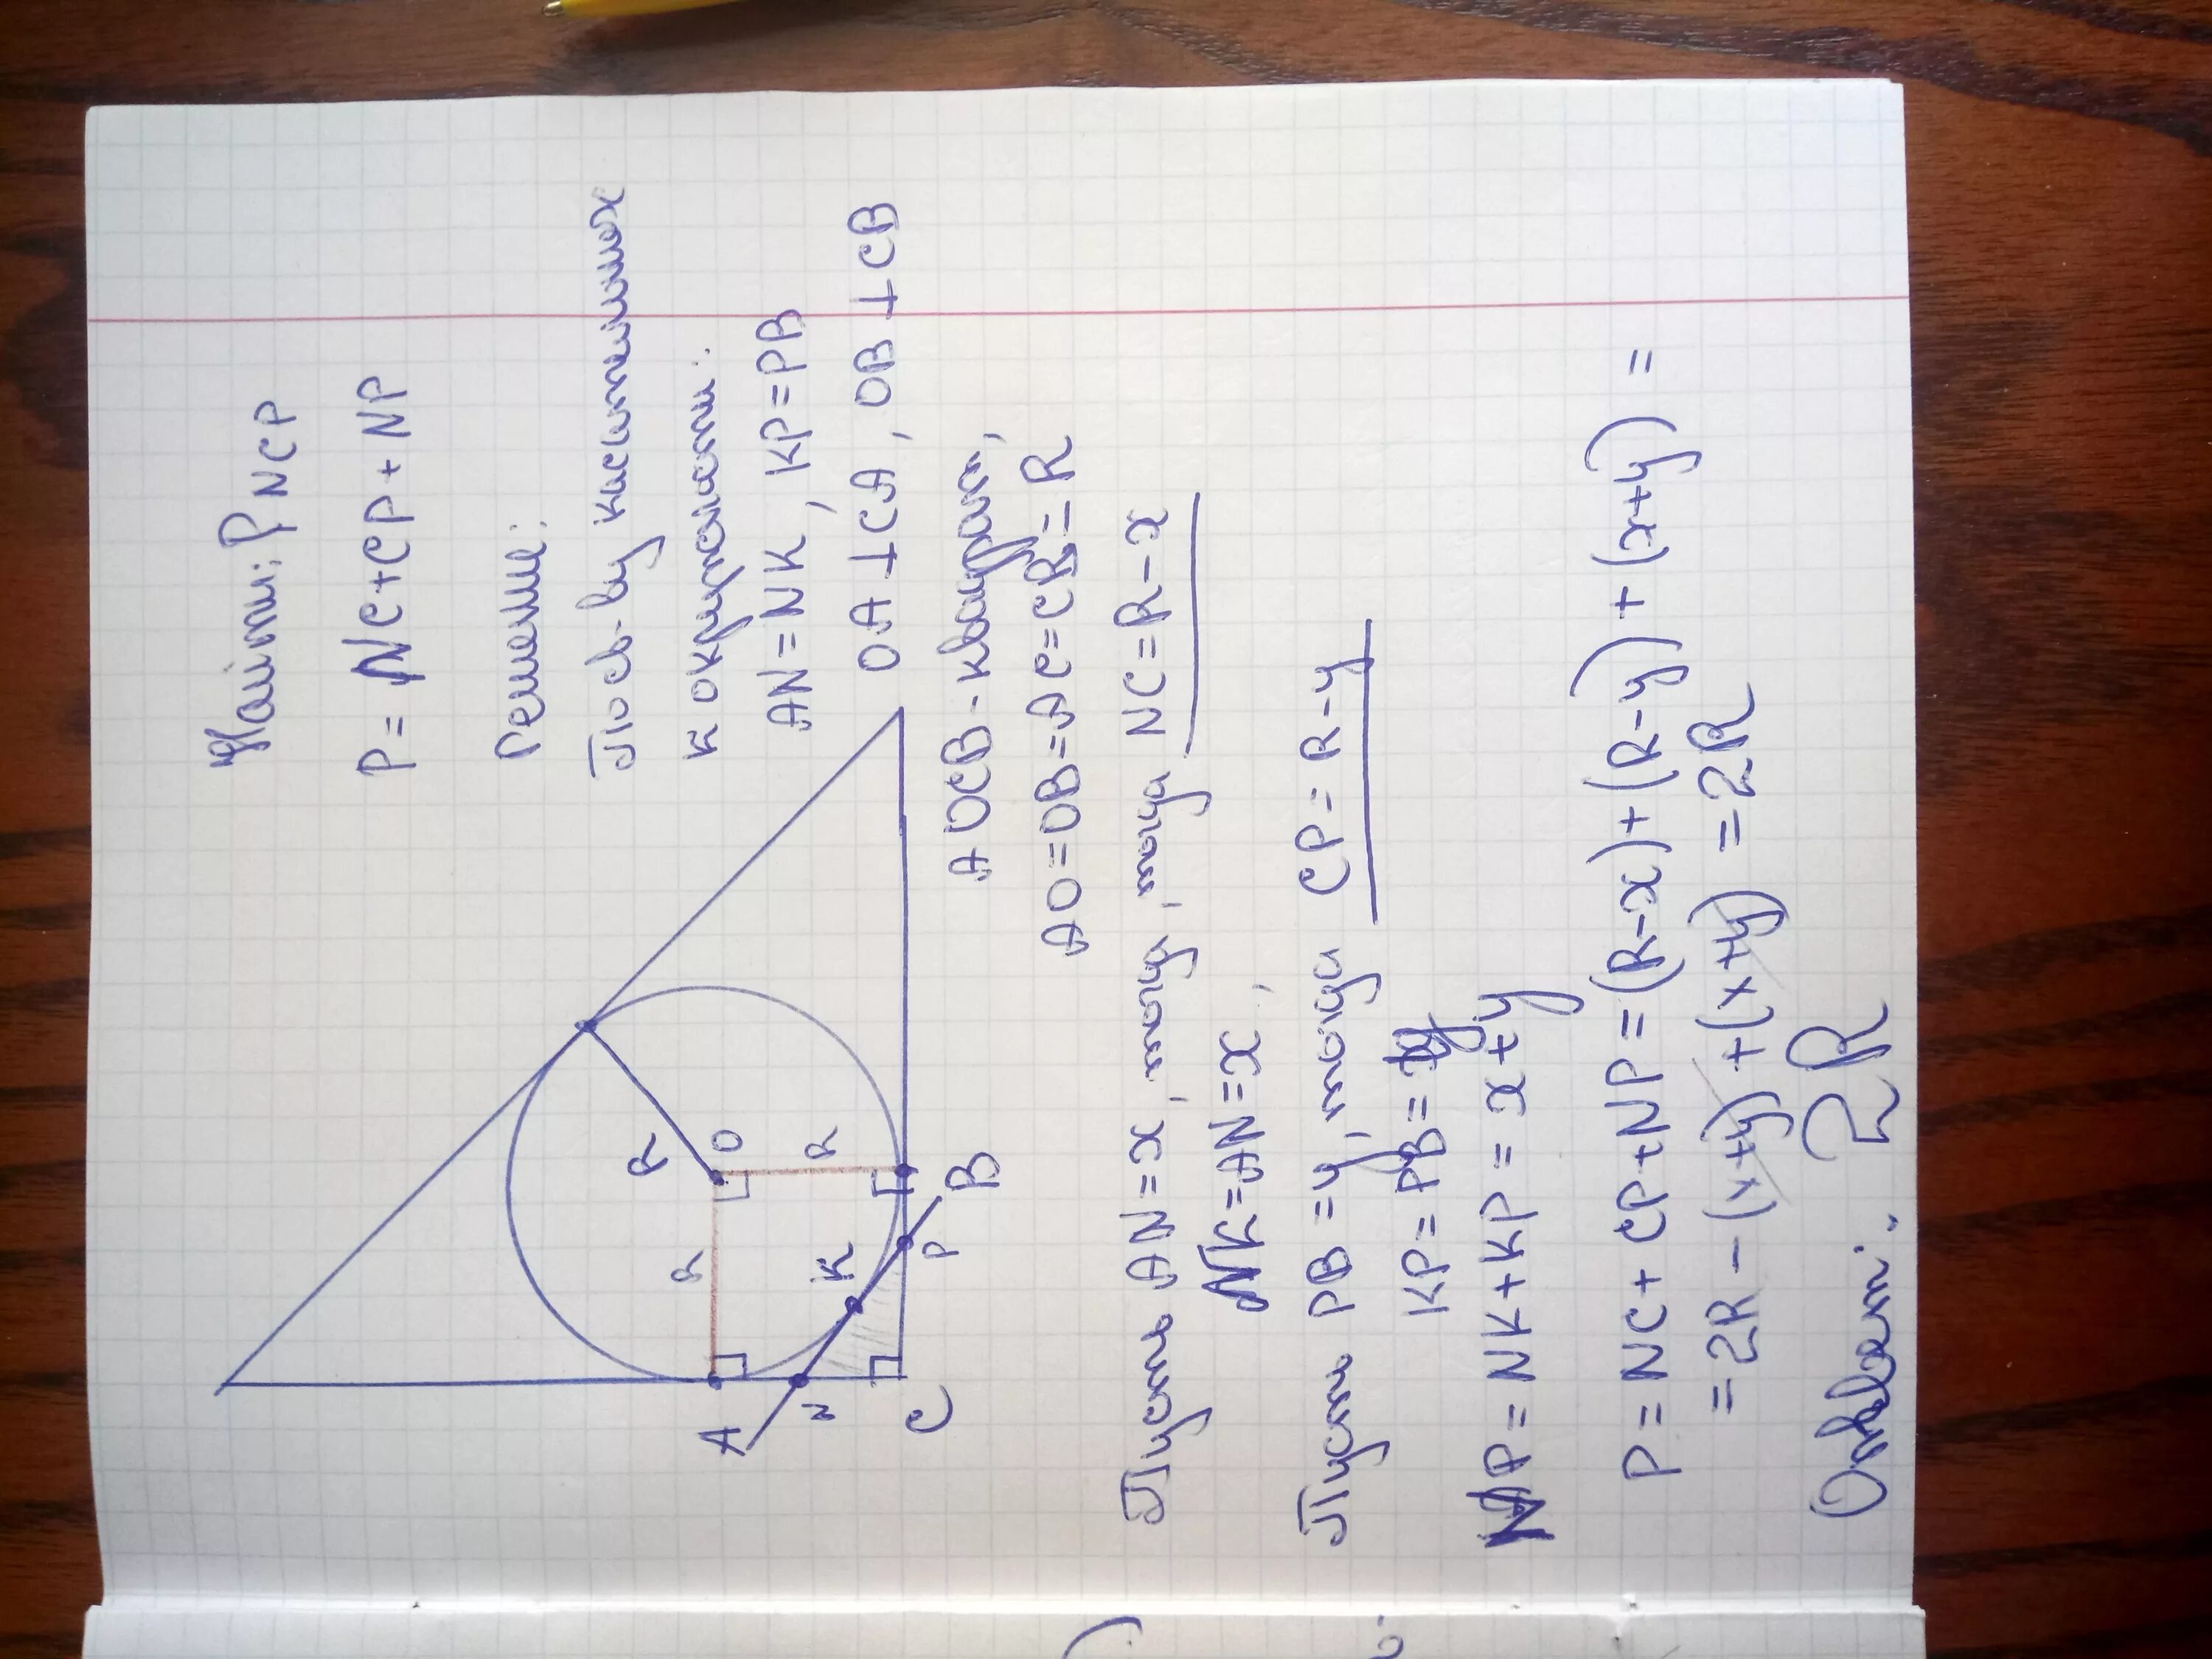 Найти: P NCP
P = NC + CP + NP
Решение:
По св-ву касательных
к окружности:
AN = NK, KP = PB
OA ⊥ CA, OB ⊥ CB
AOCB - квадрат,
AO = OB = AC = CB = R
R
O
R
R
A
N
K
P
B
C
Пусть AN = x, тогда, тогда NC = R - x
NK = AN = x,
Пусть PB = y, тогда CP = R - y
KP = PB = y
NP = NK + KP = x + y
P = NC + CP + NP = (R - x) + (R - y) + (x + y) =
= 2R - (x + y) + (x + y) = 2R
Ответ: 2R